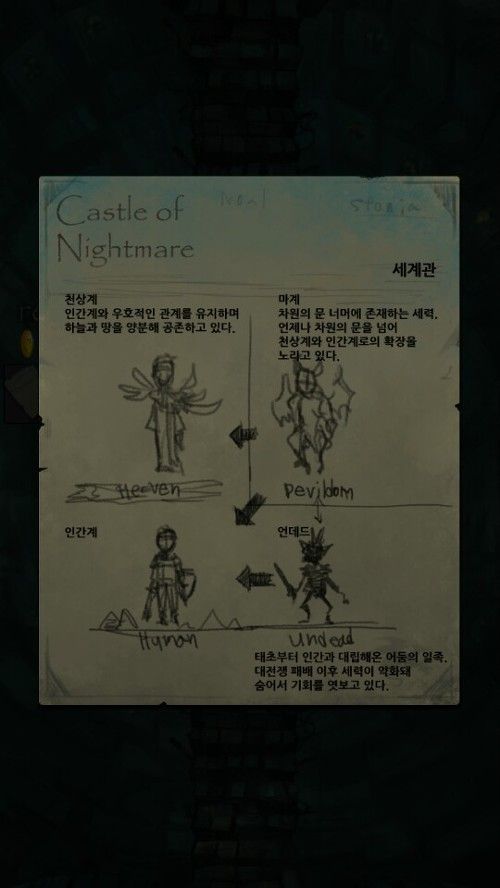 Castle of
Nightmare
Stonia
세계관
천상계
인간계와 우호적인 관계를 유지하며
하늘과 땅을 양분해 공존하고 있다.
마계
차원의 문 너머에 존재하는 세력.
언제나 차원의 문을 넘어
천상계와 인간계로의 확장을
노리고 있다.
Heaven
Devildom
인간계
언데드
Human
Undead
태초부터 인간과 대립해온 어둠의 일족.
대전쟁 패배 이후 세력이 악화돼
숨어서 기회를 엿보고 있다.